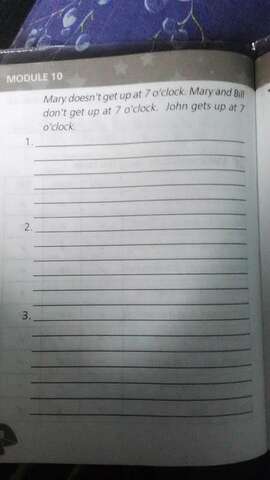 MODULE 10
Mary doesn't get up at 7 o'clock. Mary and Bill
don't get up at 7 o'clock. John gets up at 7
o'clock.
1.
2.
3.